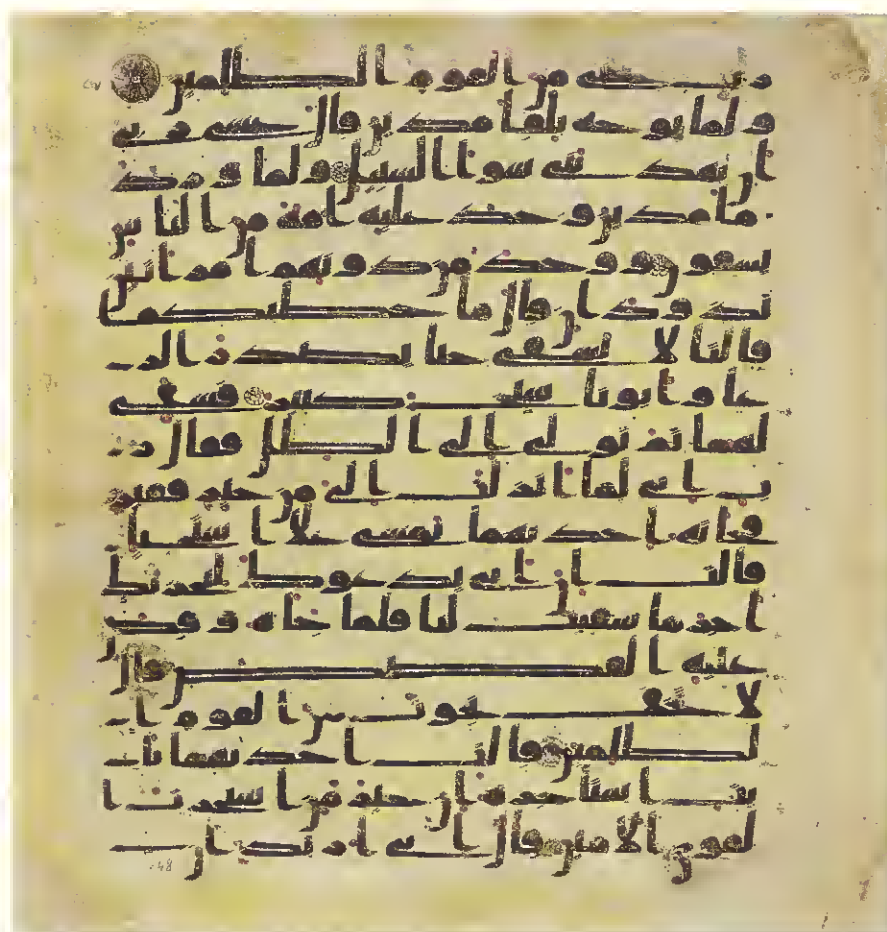 رب نجني من القوم الظلمين
ولما توجه تلقا مدين قال عسى ربي
ان يهديني سوا السبيل ولما ورد
ما مدين وجد عليه امة من الناس
يسقون ووجد من دونهم امراتين
تذودان قال ما خطبكما
قالتا لا نسقي حتى يصدر الر
عا وابونا شيخ كبير فسقى
لهما ثم تولى الى الظل فقال ر
ب اني لما انزلت الي من خير فقير
فجاته احديهما تمشي على استحيا
قالت ان ابي يدعوك ليجزيك
اجر ما سقيت لنا فلما جاه وقص
عليه القصص قال
لا تخف نجوت من القوم ا
لظلمين قالت احديهما يا
بت استاجره ان خير من استاجرت ا
لقوي الامين قال اني اريد ان
48